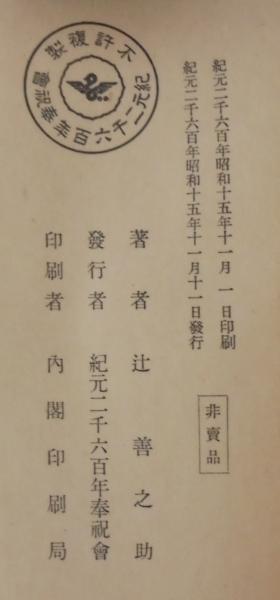 紀元二千六百年昭和十五年十一月一日印刷
紀元二千六百年昭和十五年十一月十一日發行
非賣品
著者 辻善之助
發行者 紀元二千六百年奉祝會
印刷者 內閣印刷局
不許複製
紀元二千六百年奉祝會